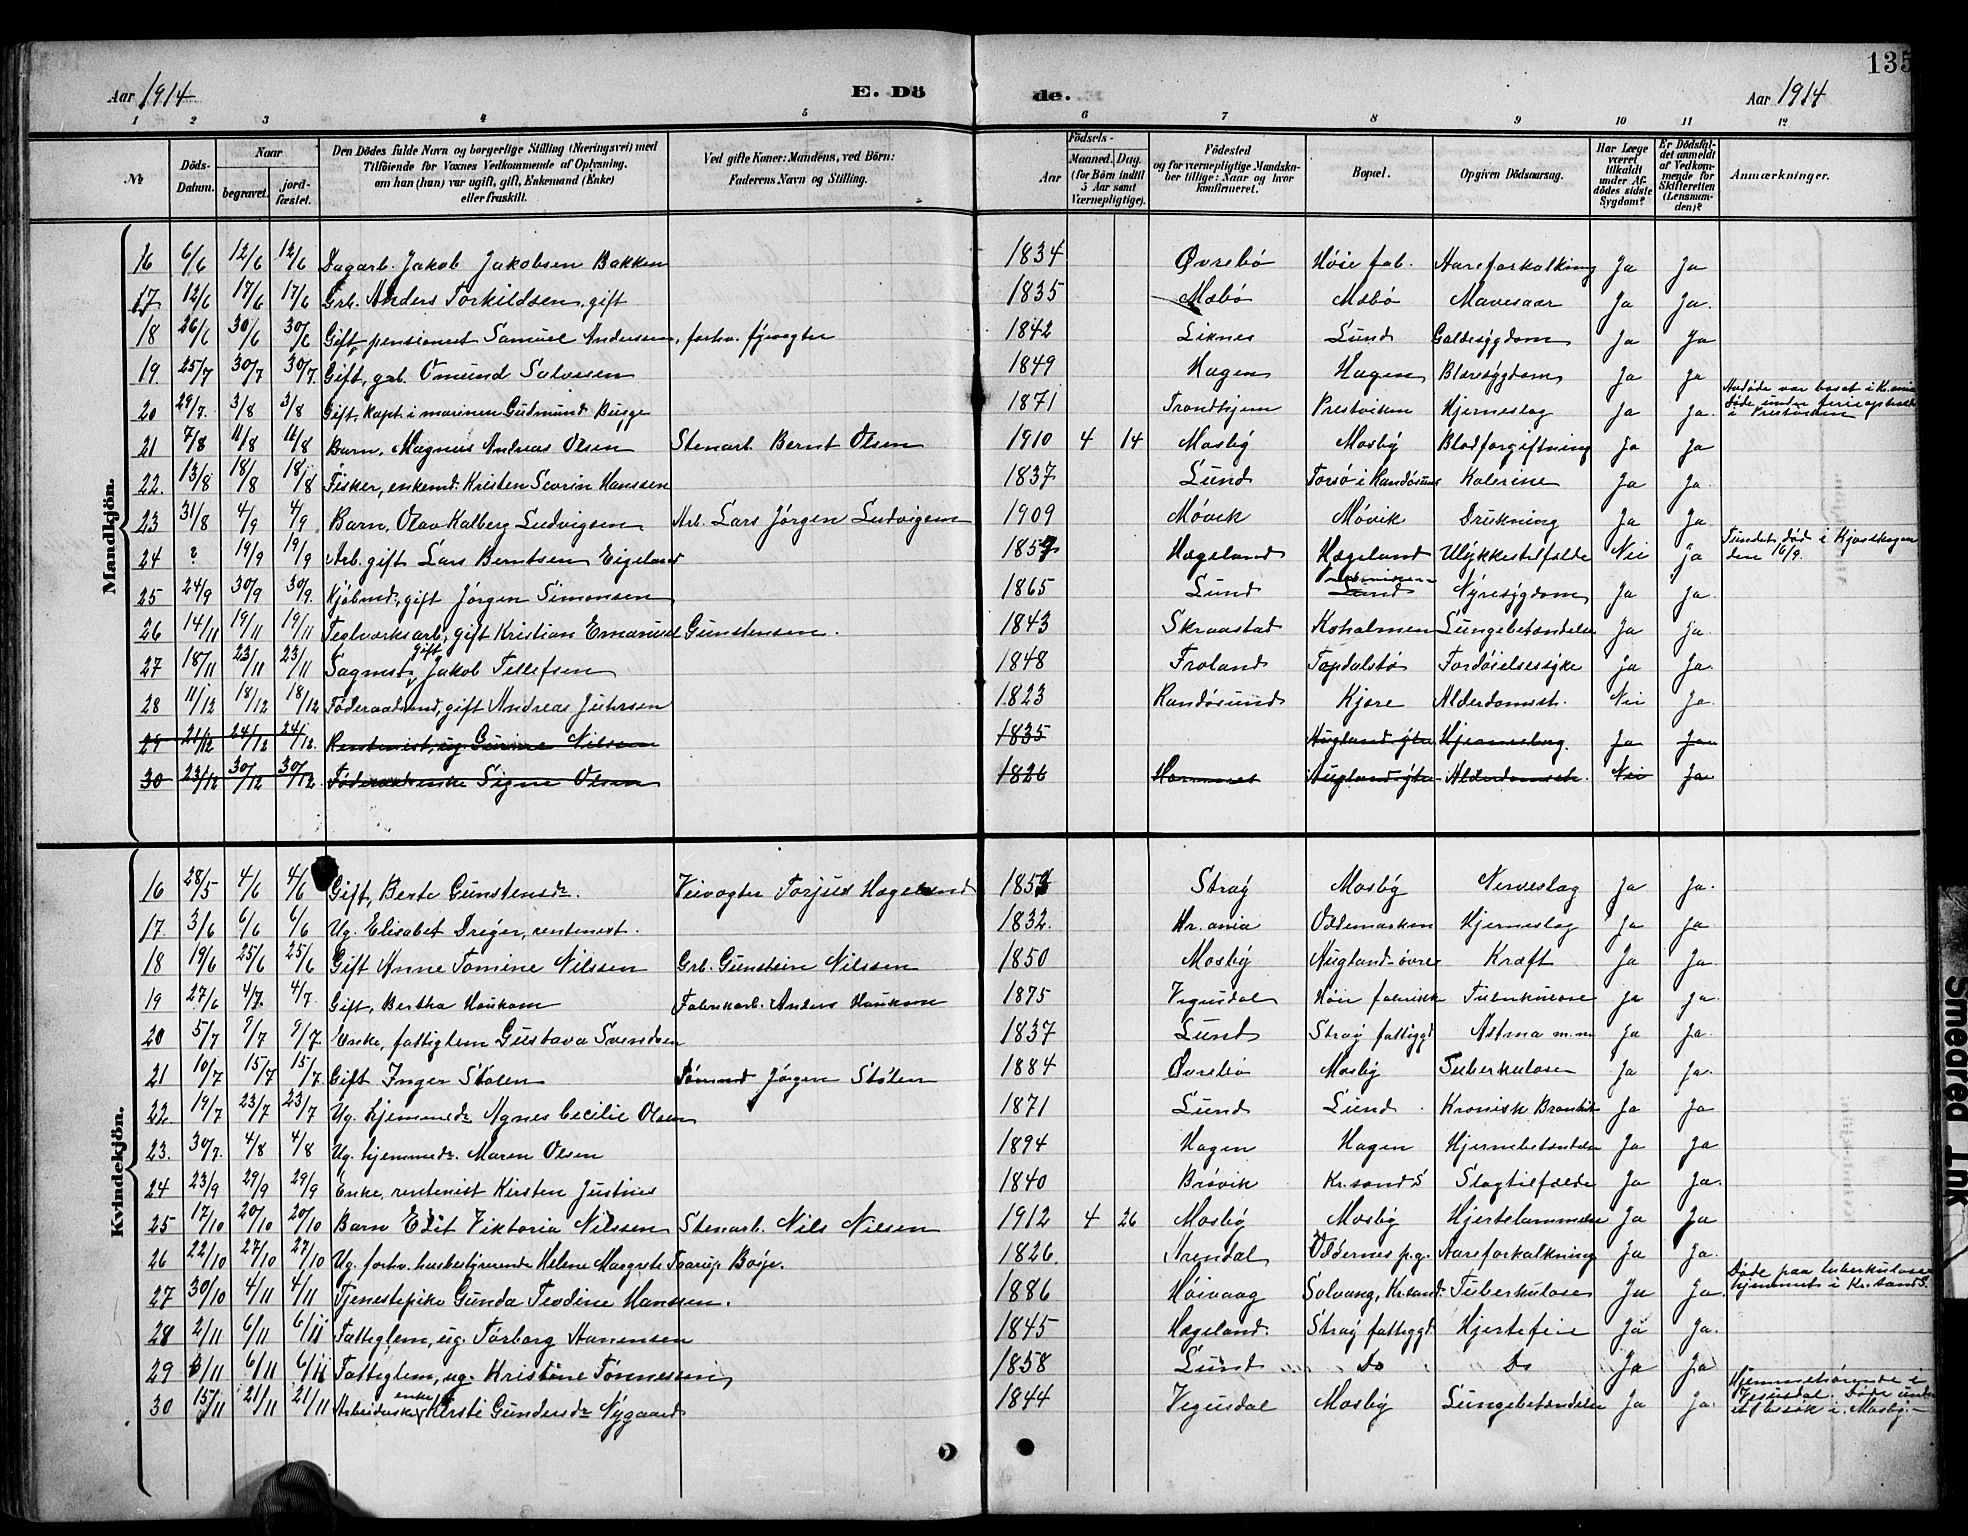 135
Aar 1914 E. Dö de. Aar 1914
1 2 3 4 5 6 7 8 9 10 11 12
No. Döds-Datum. Naar begravet. jordfæstet. Den Dödes fulde Navn og borgerlige Stilling (Næringsvei) med Tilföiende for Voxnes Vedkommende af Oplysning, om han (hun) var ugift, gift, Enkemand (Enke) eller fraskilt. Ved gifte Koner: Mandens, ved Börn: Faderens Navn og Stilling. Födsels- Aar Maaned. Dag. (for Börn indtil 5 Aar samt Værnepligtige). Födested og for værnepligtige Mandskaber tillige: Naar og hvor konfirmeret. Bopæl. Opgiven Dödsaarsag. Har Læge været tilkaldt under Afdödes sidste Sygdom? Er Dödsfaldet anmeldt af Vedkommende for Skifteretten (Lensmanden)? Anmærkninger.
Mandkjön.
16 6/6 12/6 12/6 Dagarb. Jakob Jakobsen Bakken 1834 Øvrebö Höie fab. Aareforkalkning Ja Ja
17 12/6 17/6 17/6 Grb. Anders Torkildsen, gift 1835 Mæbö Mæbö Mavesaar Ja Ja.
18 26/6 30/6 30/6 Gift, pensioneret Samuel Andersen, forhv. fyrvogter 1842 Liknes Lund Galdesygdom Ja Ja
19. 25/7 30/7 30/7. Gift, grb. Omund Salvesen 1849 Hagen Hagen Blæresygdom Ja Ja
20 29/7. 3/8 3/8 Gift, kapt. i marinen Gudmund Bugge 1871 Trondhjem Prestviken Hjerneslag Ja Ja. Avdöde var bosat i Kr.ania Döde under ferieophold i Prestviken
21 7/8 11/8 11/8 Barn, Magnus Andreas Olsen Stenarb. Bernt Olsen 1910 4 14 Mosby Mosby Blodforgiftning Ja Ja
22. 13/8 18/8 18/8 Fisker, enkemd. Kristen Severin Hanssen 1837 Lund Torsö i Randösund Kolerine Ja Ja.
23 31/8 4/9 4/9 Barn, Olav Kalberg Ludvigsen Arb. Lars Jörgen Ludvigsen 1909 Mövik Mövik Drukning Ja Ja.
24 ? 19/9 19/9 Arb. gift Lars Berntsen Eigeland 1857 Hægeland Hægeland Ulykkestilfælde Nei ja Fundet död i den 16/9.
25 24/9 30/9 30/9. Kjöbmd., gift Jörgen Simonsen 1865 Lund Lund Nyresygdom Ja Ja.
26 14/11 19/11 19/11 Teglværksarb., gift Kristian Emanuel Gunstensen. 1843 Skraastad Koholmen Lungebetændelse Ja ja.
27 18/11 23/11 23/11 Sagmst., gift Jakob Tellefsen 1848 Froland Topdalsö Fordöielsessyke ja Ja.
28 11/12 18/12 18/12 Föderaadsmd, gift Andreas Juhrsen 1823 Randösund Kjære Alderdomssv. Nei Ja.
29 21/12 24/12 24/12. Rentenist, ug. Nilsen 1835 Augland ytre Hjerneslag. Ja Ja
30 23/12 30/12 30/12. Föderaadsenke Signe Olsen 1826 Augland ytre Alderdomssv. Nei Ja
Kvindekjön.
16 28/5 4/6 4/6 Gift, Berte Gunstensdr. Veivogter Torjus Hægeland 1853 Stray Mosby Nerveslag Ja Ja.
17. 3/6 6/6 6/6 Ug. Elisabet Dreyer, rentenist. 1832. Kr.ania Oddemarken Hjerneslag Ja Ja
18 19/6 25/6 25/6 Gift Anne Tomine Nilssen Grb. Gunstein Nilssen 1850 Mosby Augland-övre Kræft Ja Ja.
19 27/6 4/7. 4/7. Gift, Bertha Haukom Fabrikarb. Anders Haukom 1875 Vegusdal Höie fabrikk Tuberkulose ja ja.
20 5/7 9/7 9/7 Enke, fattiglem Gustava Svendsen 1837 Lund Stray fattiggd Astma m.m Ja Ja
21 10/7 15/7 15/7 Gift Inger Stölen Sömand Jörgen Stölen 1884 Övrebö Mosby Tuberkulose Ja Ja.
22. 19/7 23/7 23/7 Ug. hjemmedr Agnes Cecilie Olsen 1871 Lund Lund Kronisk Bronkit Ja Ja
23. 30/7. 4/8 4/8 Ug. hjemmedr. Maren Olsen 1894 Hagen Hagen Hjernebetændelse Ja Ja
24 23/9 29/9 29/9 Enke, rentenist Kirsten Justnes 1840 Brövik Kr.sand S Slagtilfælde Ja Ja.
25 17/10 20/10 20/10 Barn Edit Viktoria Nilssen Stenarb. Nils Nilsen 1912 4 26 Mosby Mosby Hjertelammelse Ja Ja
26 22/10 27/10 27/10 Ug. forhv. husbestyrerinde Helene Margrete Taarup Böije. 1826. Arendal Oddernes p.g. Aareforkalkning Ja Ja.
27 30/10 4/11 4/11 Tjenestepike Gunda Teodine Hanssen. 1886 Höivaag Solvang, Kr.sand Tuberkulose Ja Ja. Döde paa tuberkulosehjemmet i Kr.sand S.
28 2/11 6/11 6/11 Fattiglem, ug. Torborg Hanensen 1845 Hægeland. Stray fattiggd Hjertefeil Ja Ja.
29 /11 6/11 6/11 Fattiglem, ug. Kristine Tönnessen, 1858 Lund Do Do Ja Ja
30 15/11 21/11 21/11 Arbeiderske, enke Kirsti Gundersdr Nygaard 1844 Vegusdal Mosby Lungebetændelse Ja Ja. Hjemmehörende i Vegusdal. Döde under et besök i Mosby.
Smeared Ink